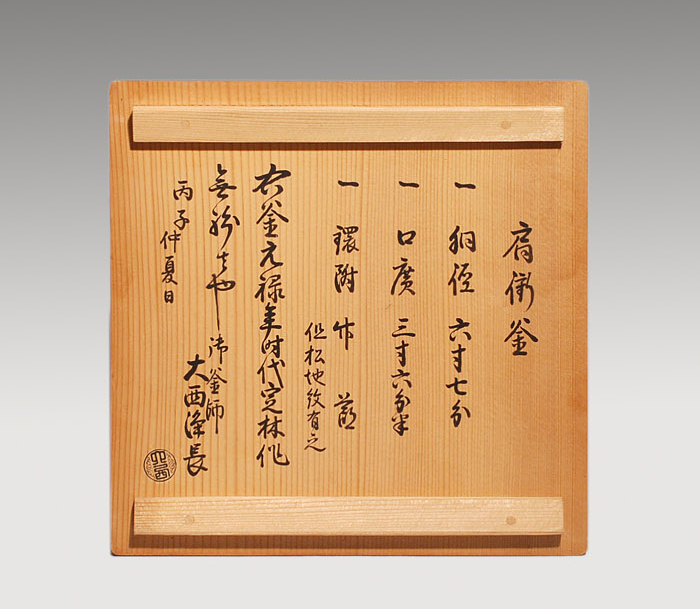 肩衝釜
一 胴径 六寸七分
一 口廣 三寸六分半
一 環附 竹節
但松地紋有之
右釜元禄年時代定林作
無紛者也
御釜師
大西浄長
丙子仲夏日